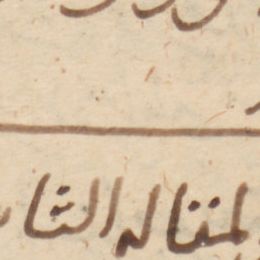 لمقاله الثا